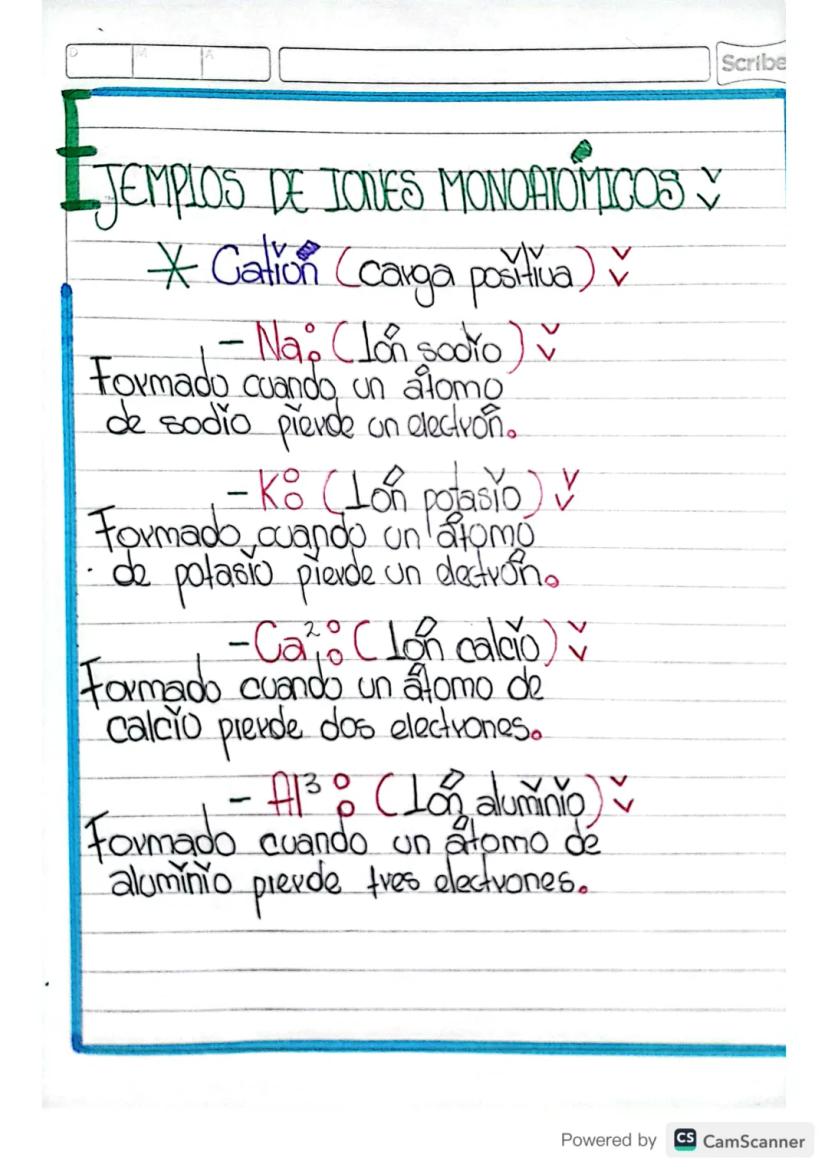 D M A Scribe
EJEMPLOS DE IONES MONOATÓMICOS:
* Catión (carga positiva):
- Na: (Ión sodio):
Formado cuando un átomo
de sodio pierde un electrón.
- K: (Ión potasio):
Formado cuando un átomo
de potasio pierde un electrón.
- Ca²: (Ión calcio):
Formado cuando un átomo de
calcio pierde dos electrones.
- Al³: (Ión aluminio):
Formado cuando un átomo de
aluminio pierde tres electrones.
Powered by CS CamScanner